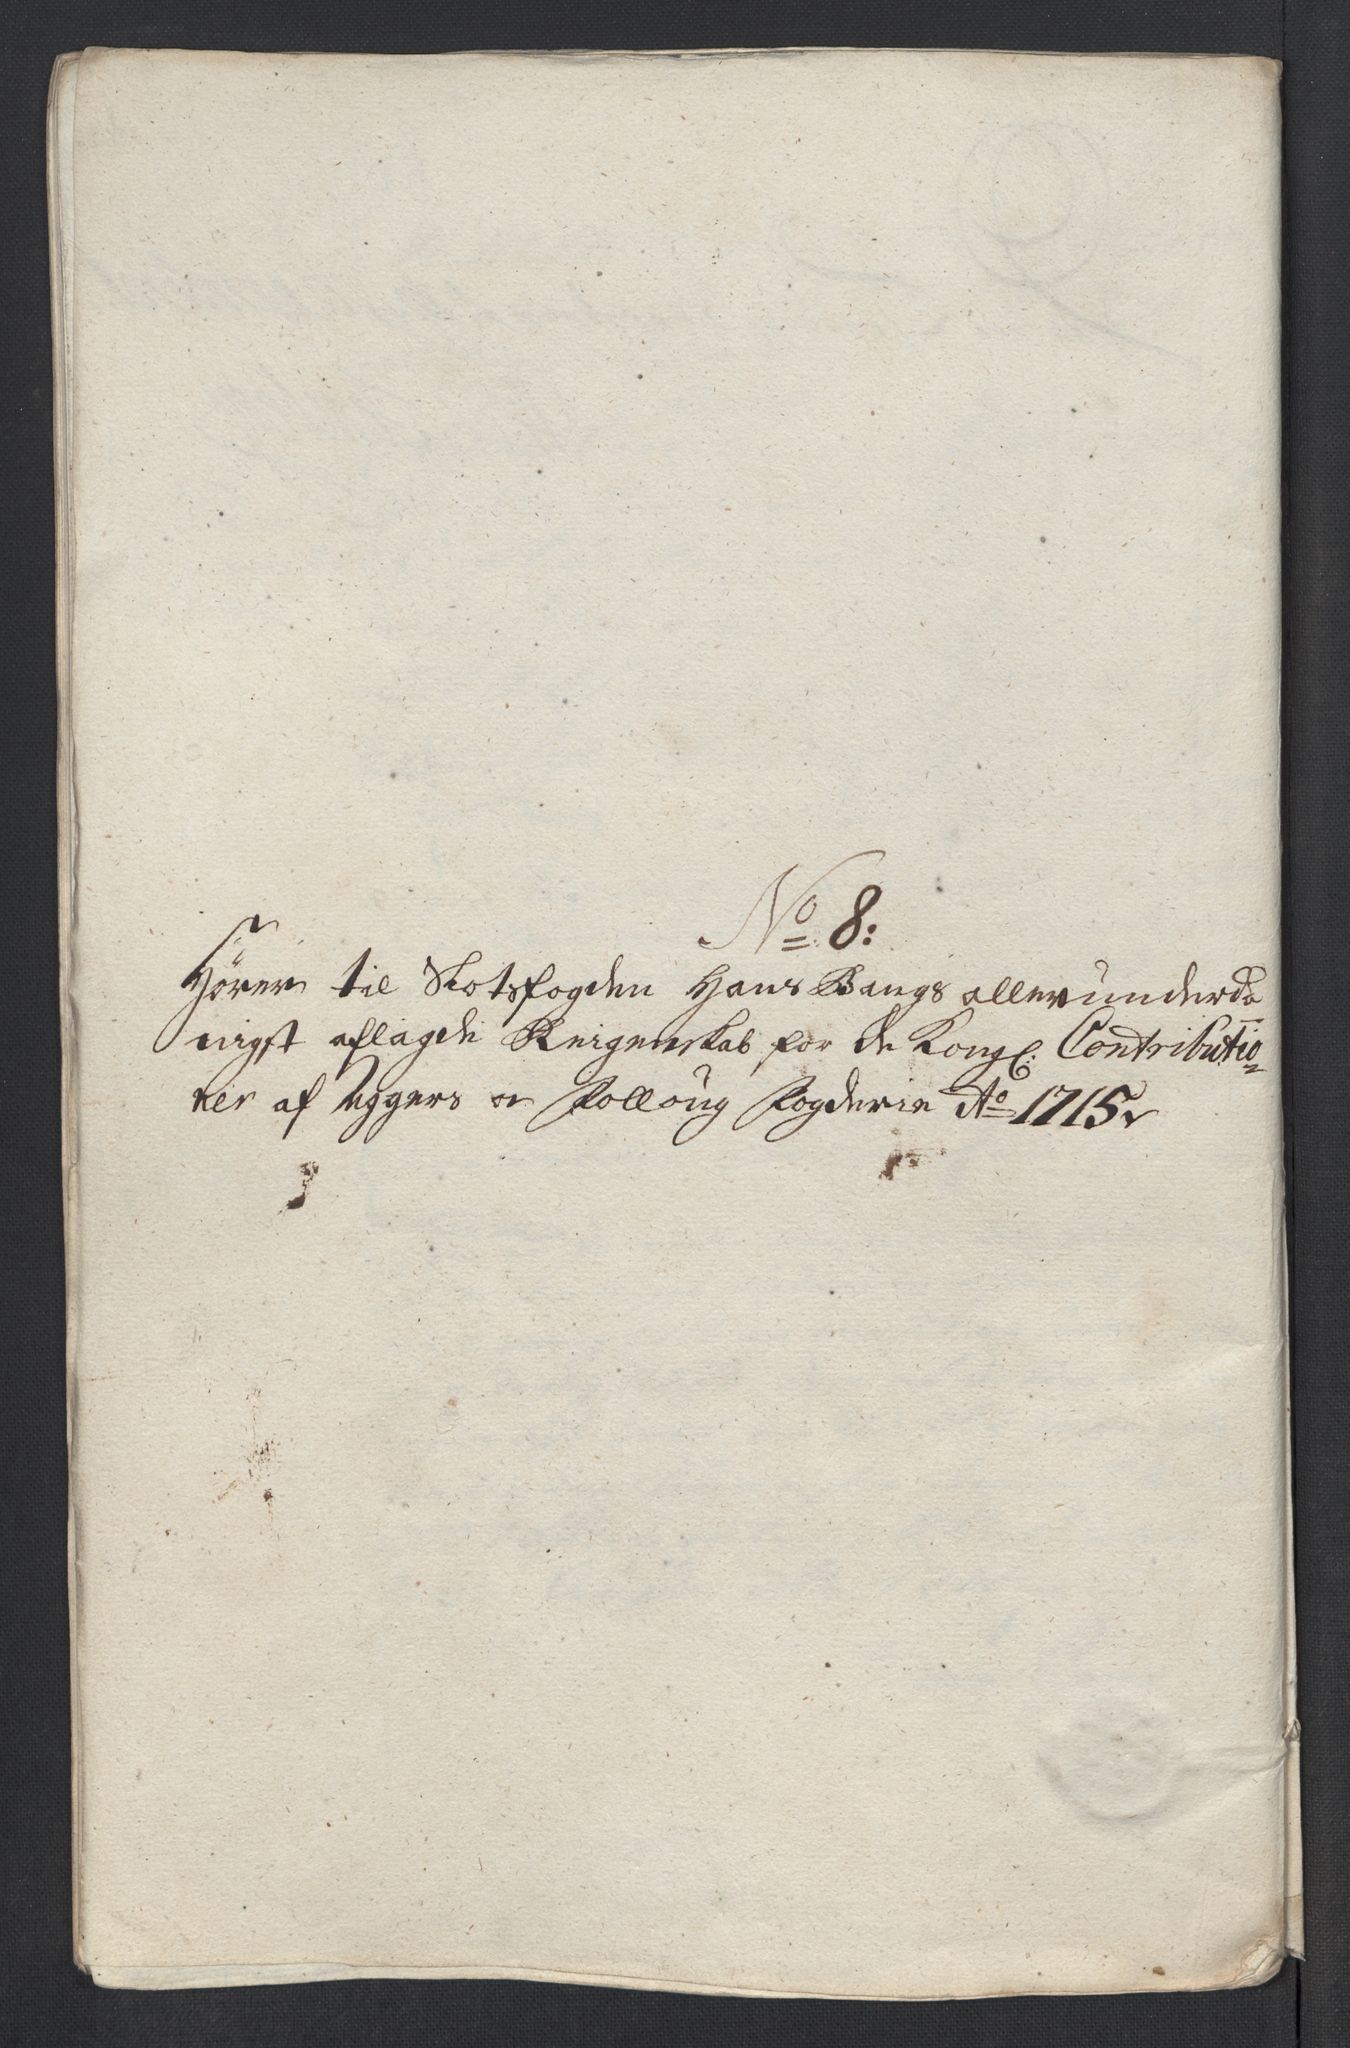 No 8:
Hörer til Slotsfogden Hans Bangs allerunderda
nigst aflagde Reigenskab for de Kongl: Contributio=
ner af Aggers oc Folloug Fogderie Ao 1715